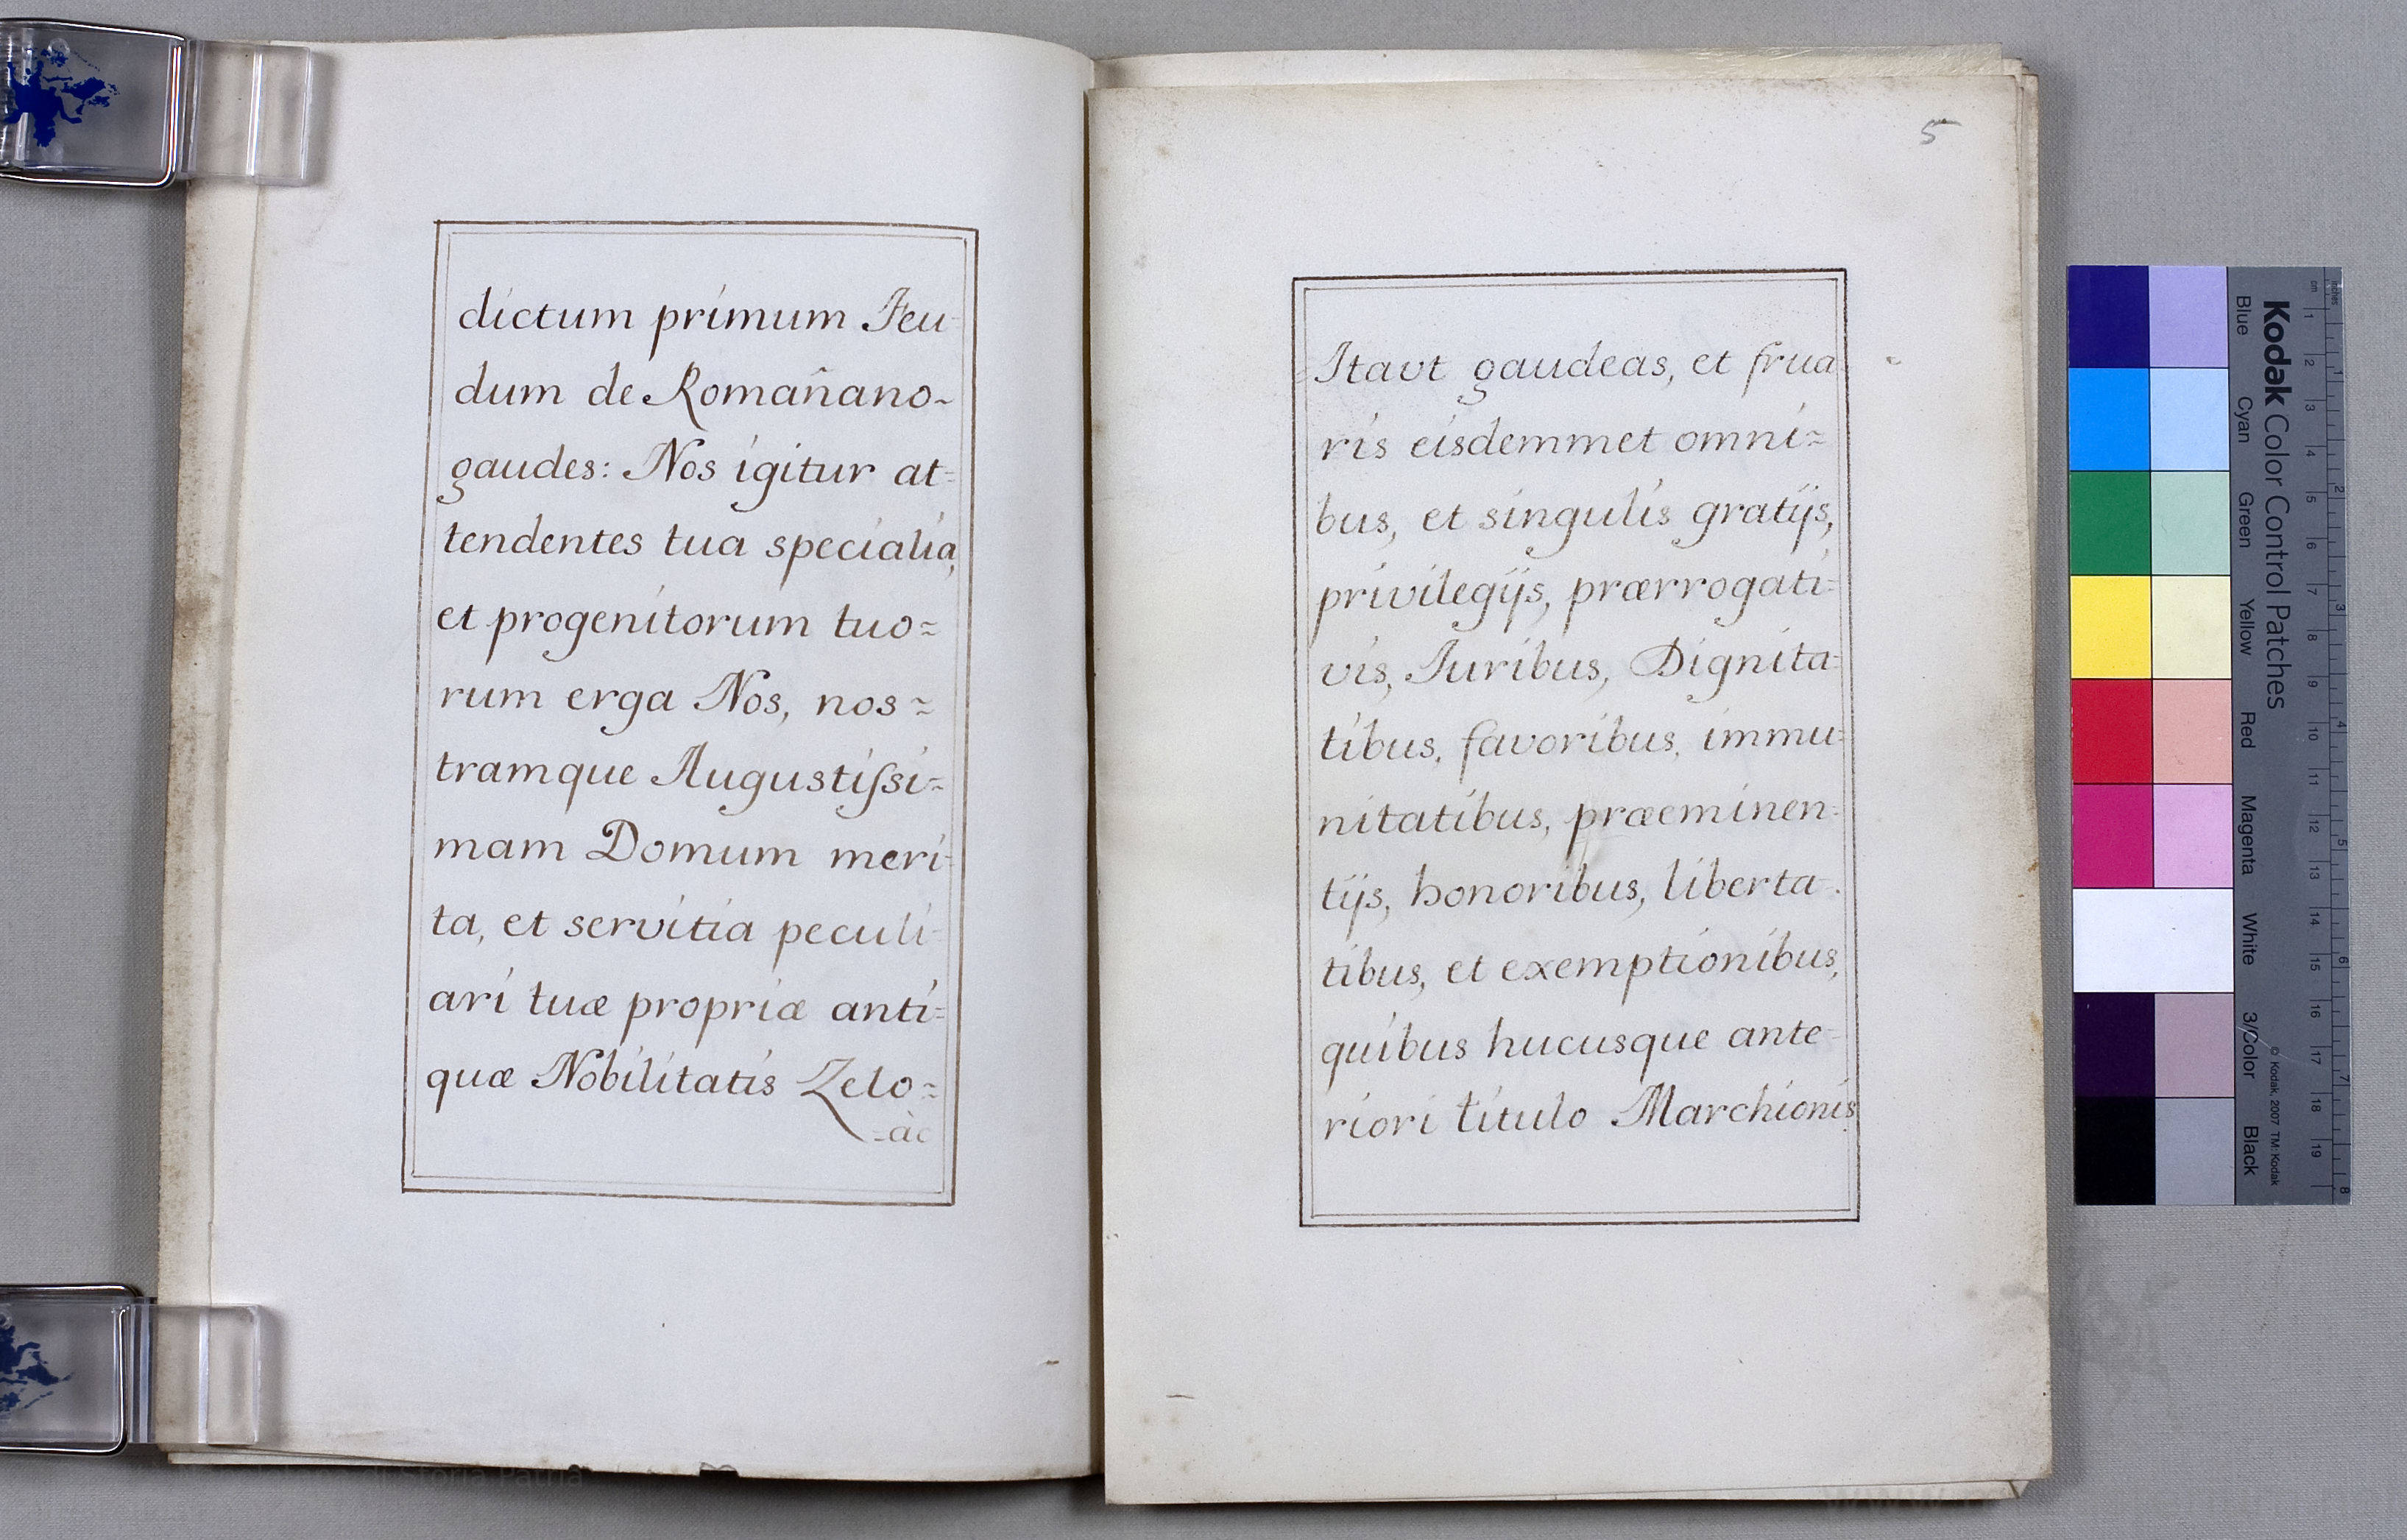 dictum primum Feu-
dum de Romañano~
gaudes: Nos igitur at=
tendentes tua specialia,
et progenitorum tuo=
rum erga Nos, nos=
tramque Augustiſsi=
mam Domum meri=
ta, et servitia peculi=
ari tuæ propriæ anti=
quæ Nobilitatis Zelo=
=ac
5
Itavt gaudeas, et frua
ris eisdemmet omni=
bus, et singulis gratijs,
privilegijs, prærrogati=
vis, Juribus, Dignita=
tibus, favoribus, immu=
nitatibus, præeminen=
tijs, honoribus, liberta-
tibus, et exemptionibus,
quibus hucusque ante-
riori titulo Marchionis
Kodak Color Control Patches
Blue Cyan Green Yellow Red Magenta White 3/Color Black
© Kodak, 2007 TM: Kodak
cm 1 2 3 4 5 6 7 8 9 10 11 12 13 14 15 16 17 18 19
inches 1 2 3 4 5 6 7 8
di Storia Patria